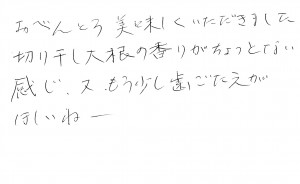 おべんとう美味しくいただきました
切り干し大根の香りがちょっとない
感じ、又もう少し歯ごたえが
ほしいねー